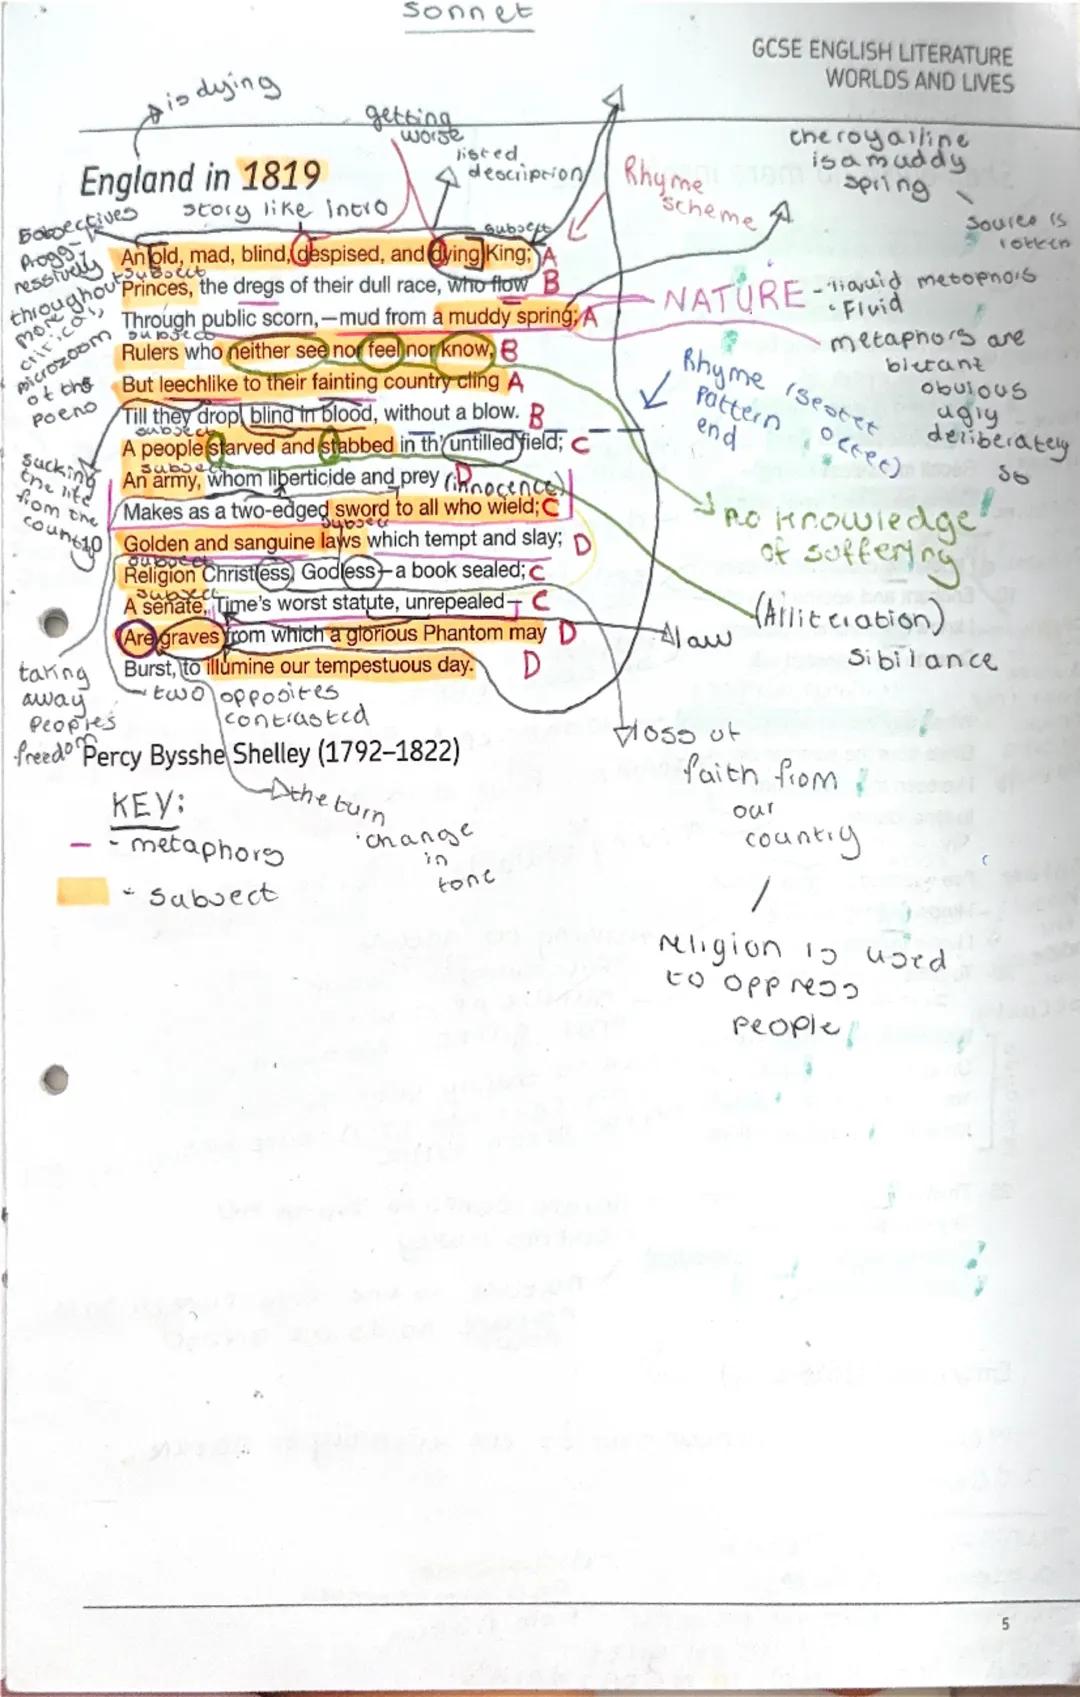 Sonnet
GCSE ENGLISH LITERATURE
WORLDS AND LIVES
is dying
getting
worse
listed
description
Rhyme
scheme
the royal line
is a muddy
spring
Source is
rotten
England in 1819
story like intro
5 adjectives
Progg-
ressively
throughout
more
microzoom
of the
poem
subject
An old, mad, blind, despised, and dying King; A
subject
Princes, the dregs of their dull race, who flow B
Through public scorn,—mud from a muddy spring; A
subject
Rulers who neither see nor feel nor know, B
But leechlike to their fainting country cling A
Till they drop, blind in blood, without a blow. B
subject
A people starved and stabbed in th' untilled field; C
subject
An army, whom liberticide and prey D
(innocence)
Makes as a two-edged sword to all who wield; C
subject
10 Golden and sanguine laws which tempt and slay; D
subject
Religion Christless, Godless—a book sealed; C
subject
A senate, Time's worst statute, unrepealed— C
Are graves from which a glorious Phantom may D
Burst, to illumine our tempestuous day. D
NATURE - liquid metaphors
• Fluid
metaphors are
ugly
deliberately
so
Rhyme
Pattern
end
(sestet
octet)
sucking
the life
from the
country
no knowledge
of suffering
(Alliteration)
Sibilance
law
taking
away
Peoples
freedom
two opposites
contrasted
Percy Bysshe Shelley (1792–1822)
the turn
• change
in
tone
loss of
faith from
our
country
religion is used
to oppress
people
KEY:
- metaphors
- Subject
5